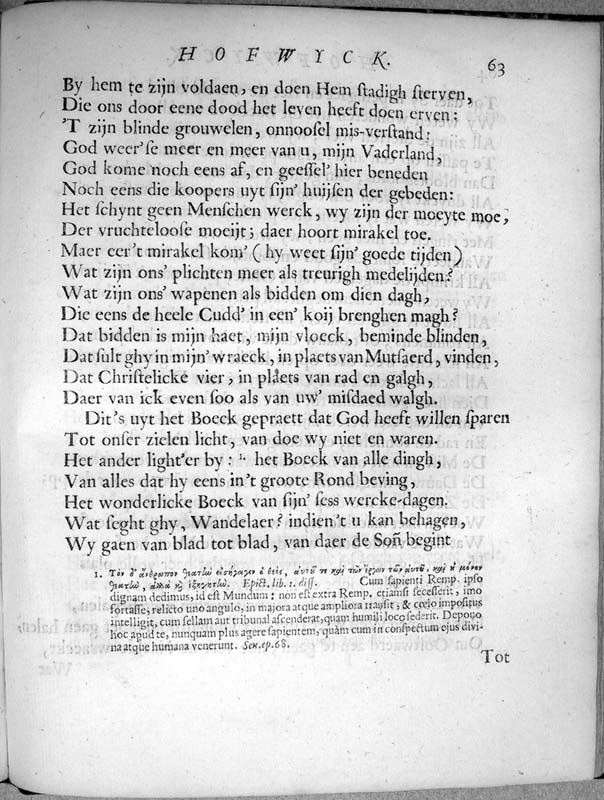 HOFWYCK. 63
By hem te zijn voldaen, en doen Hem ſtadigh ſterven,
Die ons door eene dood het leven heeft doen erven:
'T zijn blinde grouwelen, onnooſel mis-verſtand:
God weer'ſe meer en meer van u, mijn Vaderland,
God kome noch eens af, en geeſſel' hier beneden
Noch eens die koopers uyt ſijn' huijſen der gebeden:
Het ſchynt geen Menſchen werck, wy zijn der moeyte moe,
Der vruchteloose moeijt; daer hoort mirakel toe.
Maer eer't mirakel kom' (hy weet ſijn' goede tijden)
Wat zijn ons' plichten meer als treurigh medelijden?
Wat zijn ons' wapenen als bidden om dien dagh,
Die eens de heele Cudd' in een' koij brenghen magh?
Dat bidden is mijn haet, mijn vloeck, beminde blinden,
Dat ſult ghy in mijn' wraeck, in plaets van Mutſaerd, vinden,
Dat Chriſtelicke vier, in plaets van rad en galgh,
Daer van ick even ſoo als van uw' misdaed walgh.
Dit's uyt het Boeck gepraett dat God heeft willen ſparen
Tot onſer zielen licht, van doe wy niet en waren.
Het ander light'er by: 1. het Boeck van alle dingh,
Van alles dat hy eens in't groote Rond beving,
Het wonderlicke Boeck van ſijn' ſess wercke-dagen.
Wat ſeght ghy, Wandelaer? indien't u kan behagen,
Wy gaen van blad tot blad, van daer de Soñ begint
1. Τὸν δ' ἄνθρωπον θεατὴν εἰσήγαγεν ὁ θεὸς, αὑτοῦ τε καὶ τῶν ἔργων τῶν αὑτοῦ, καὶ ȣ̓ μόνον
θεατὴν, ἀλλὰ καὶ ἐξηγητήν. Epict. lib. 1. diſſ. Cum ſapienti Remp. ipſo
dignam dedimus, id eſt Mundum: non eſt extra Remp. etiamſi ſeceſſerit, imo
fortaſſe, relicto uno angulo, in majora atque ampliora tranſit, & cœlo impoſitus
intelligit, cum ſellam aut tribunal aſcenderat, quam humili loco ſederit. Depono
hoc apud te, nunquam plus agere ſapientem, quàm cum in conſpectum ejus divi-
na atque humana venerunt. Sen. ep. 68.
Tot